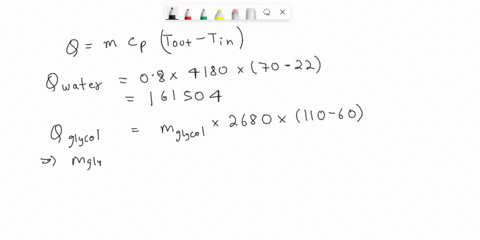 Q = m cp (Tout - Tin)
Qwater = 0.8 × 4180 × (70 - 22)
= 161504
Qglycol = mglycol × 2680 × (110 - 60)
⇒ mgly